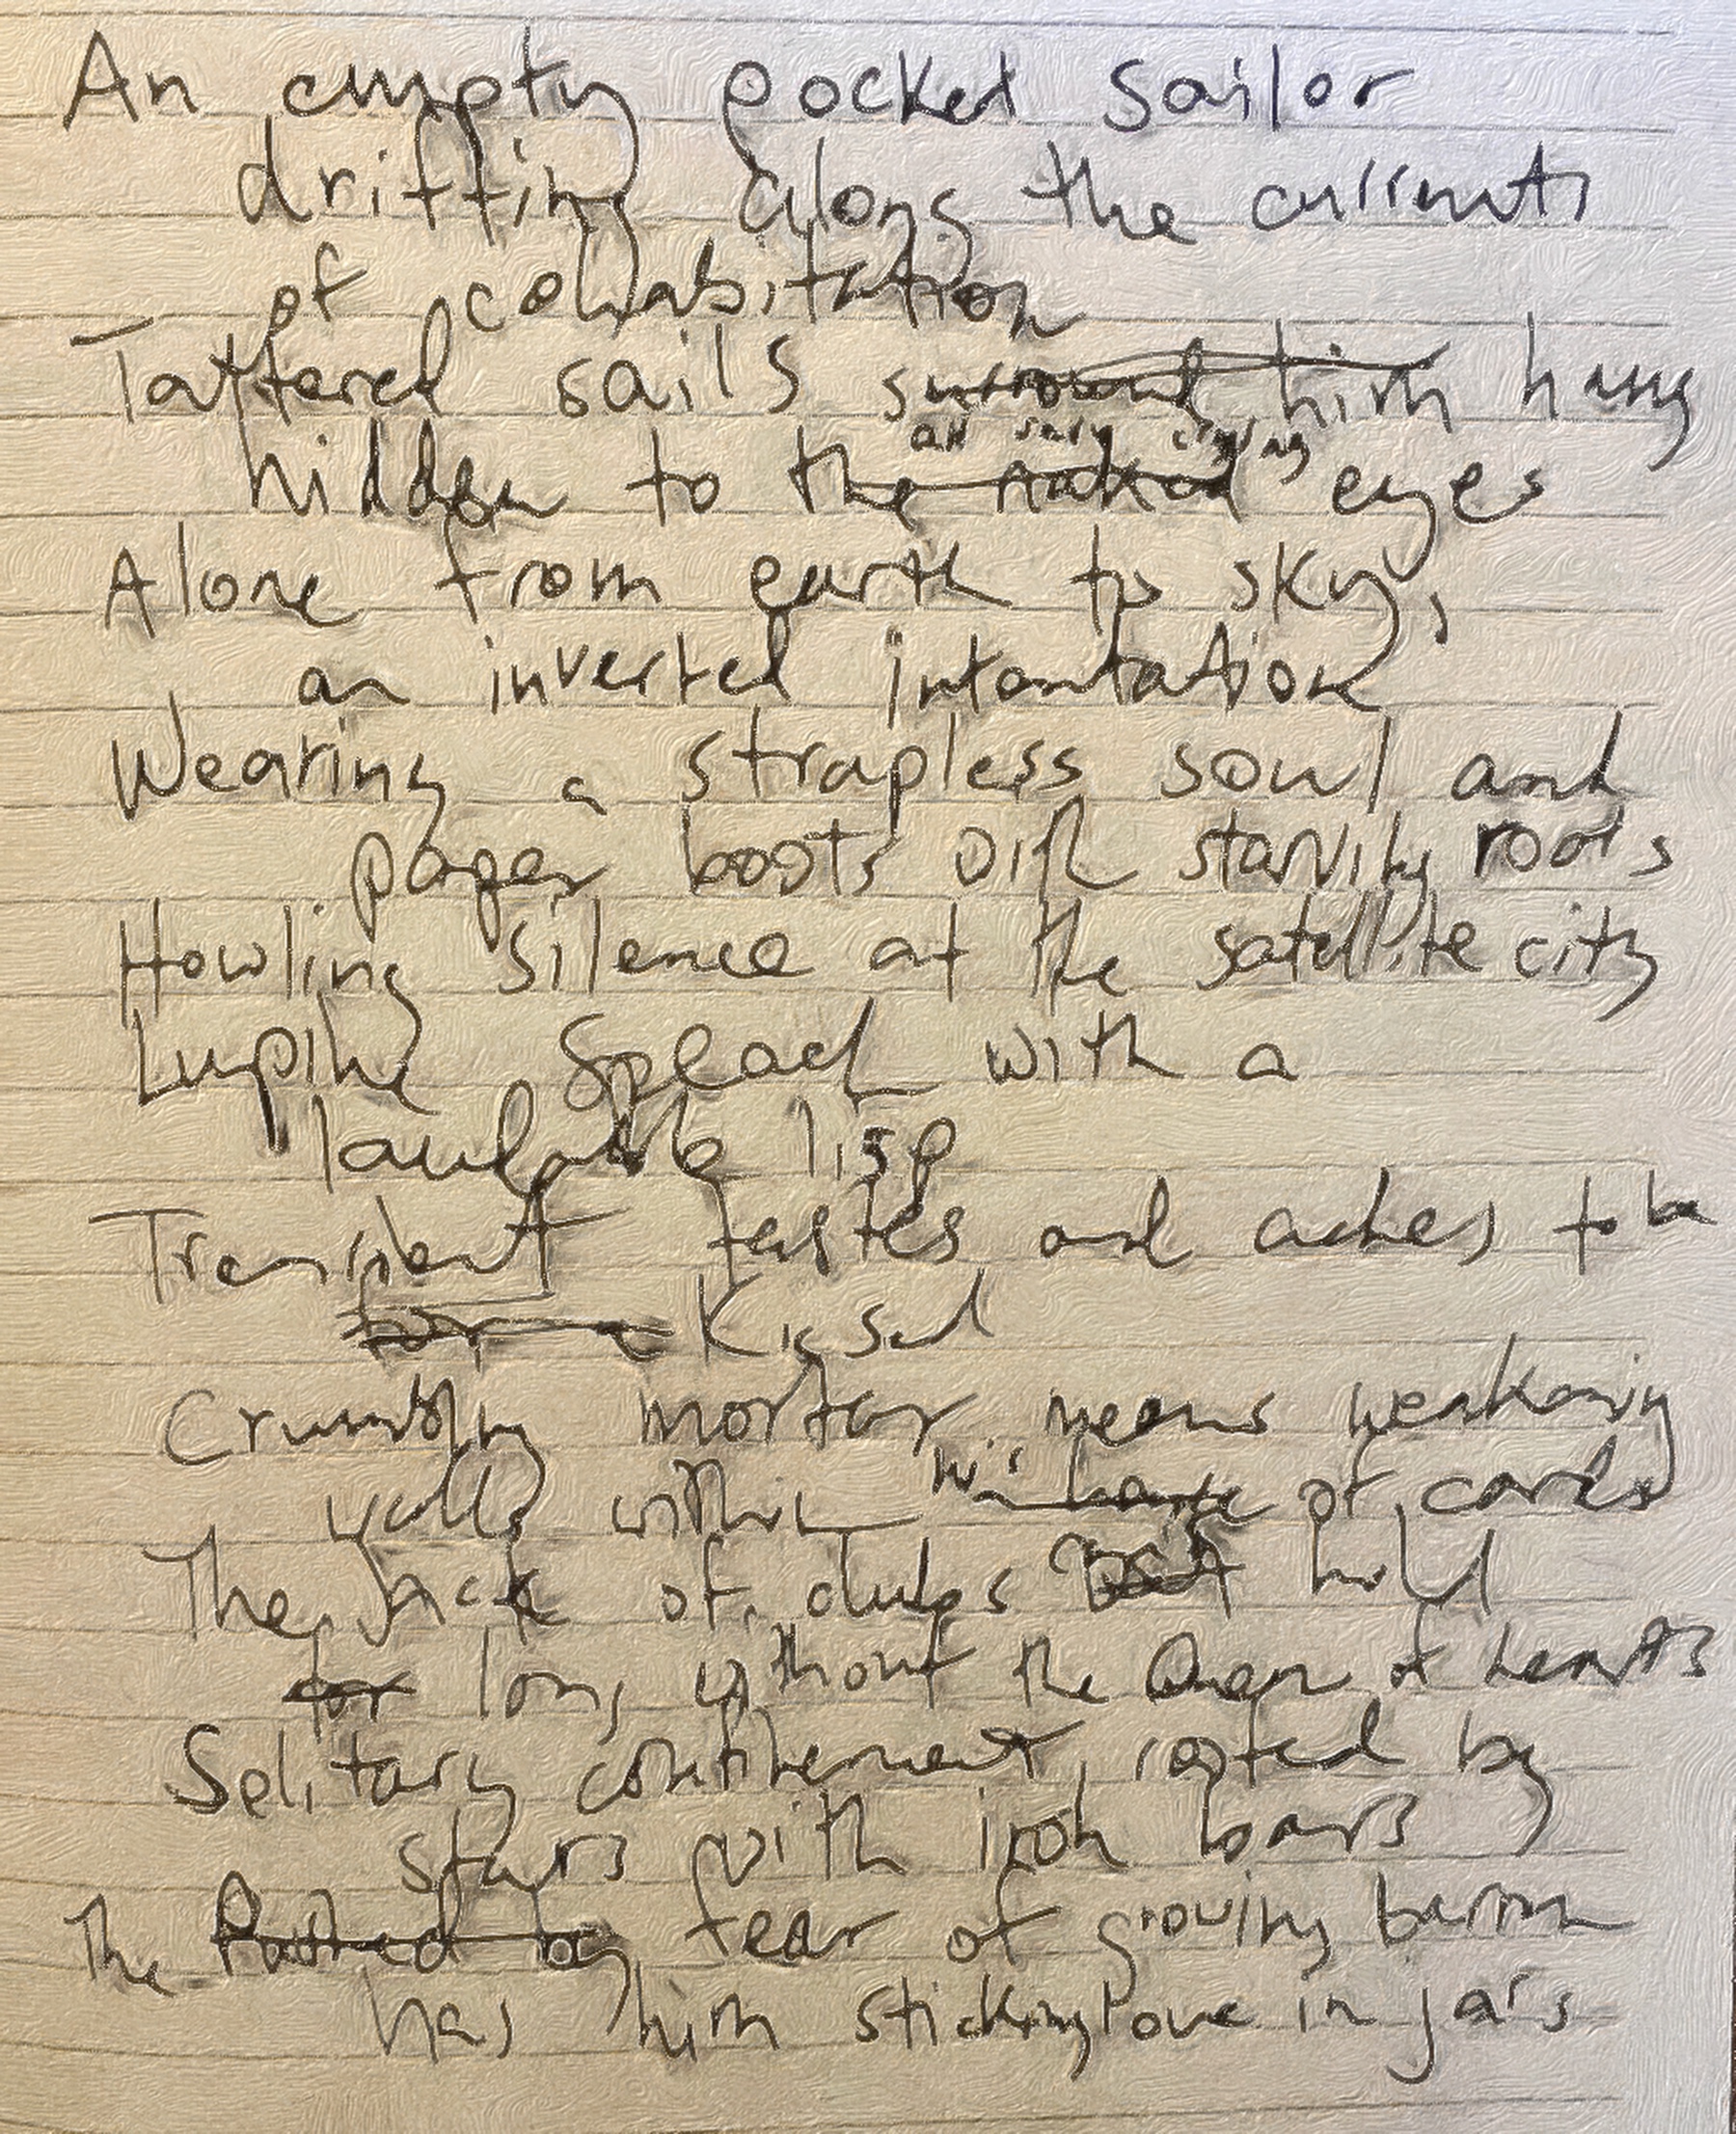 An empty pocked sailor
drifting along the currents
of cohabitation
Tattered sails surround him hang
all
hidden to the naked eyes
Alone from earth to sky,
an inverted
Wearing a strapless soul and
paper boots with starving roots
Howling silence at the satellite city
Lupine speach with a
laudable lisp
Transient tastes and aches to be
for a Kissed
Crumbling mortar means weakening
his
walls within a house of cards
The Jack of clubs hold
for long without the Queen of hearts
Solitary confinement, roofed by
stars with iron bars
The Pushed by fear of growing barren
has him sticking love in jars